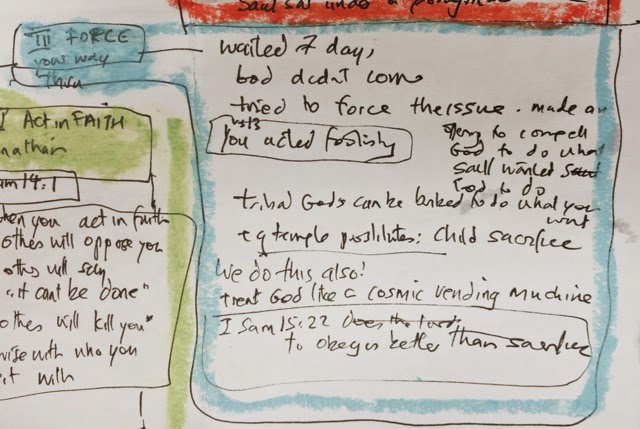 Saul sat under a pomegranate
III FORCE
your way
thru
waited 7 days,
God didnt com
tried to force the issue. made an
offering to compell
God to do what
Saul wanted
God to do
vs 13
You acted foolishly
tribal Gods can be bribed to do what you
want
eg temple prostitutes: child sacrifice
we do this also!
treat God like a cosmic vending machine
I Sam 15:22 Does the Lord,
to obey is better than sacrifice
I Act in FAITH
nathan
am 14:1
hen you act in faith
others will oppose you
others will say
"it cant be done"
others will kill you"
wise with who you
it with